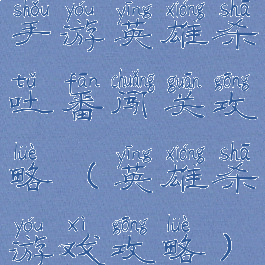 shǒu yóu yīng xióng shā
手游英雄杀
tǔ fān chuǎng guān gōng
吐番闯关攻
lüè yīng xióng shā
略(英雄杀
yóu xì gōng lüè
游戏攻略)